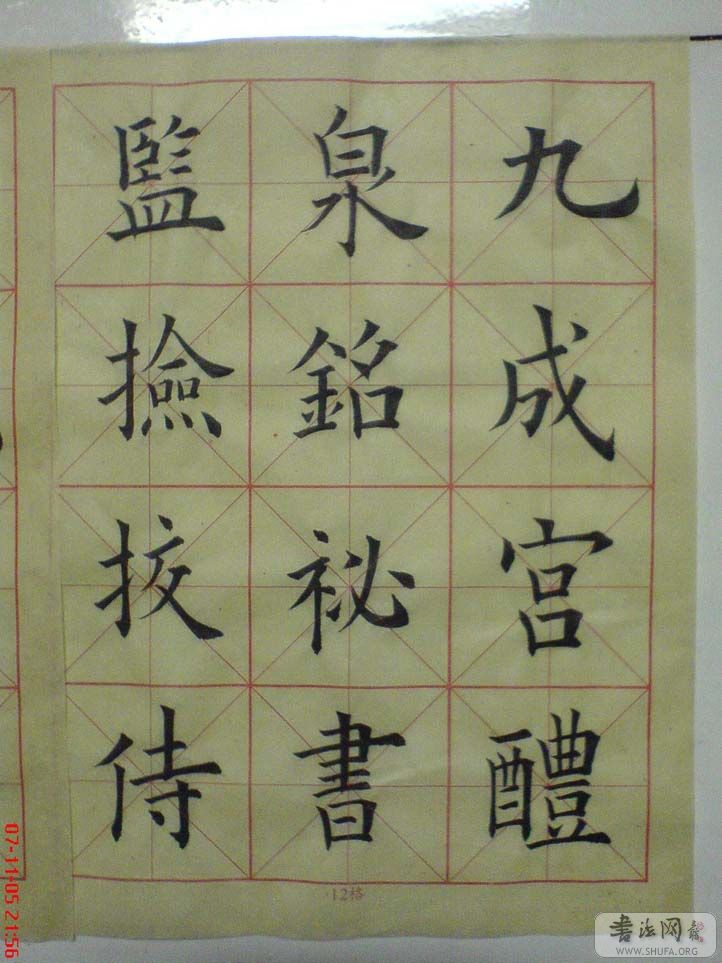 九成宫醴
泉銘祕書
監撿挍侍
12格
07-11-05 21:56
书法网
WWW.SHUFA.ORG